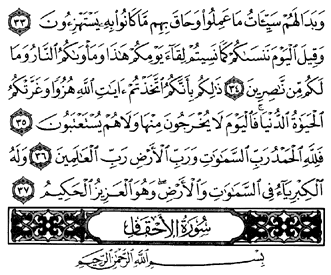 وَبَدَا لَهُمْ سَيِّئَاتُ مَا عَمِلُوا وَحَاقَ بِهِم مَّا كَانُوا بِهِ يَسْتَهْزِءُونَ ٣٣
وَقِيلَ الْيَوْمَ نَنسَىٰكُمْ كَمَا نَسِيتُمْ لِقَاءَ يَوْمِكُمْ هَٰذَا وَمَأْوَىٰكُمُ النَّارُ وَمَا
لَكُم مِّن نَّٰصِرِينَ ٣٤ ذَٰلِكُم بِأَنَّكُمُ اتَّخَذْتُمْ ءَايَٰتِ اللَّهِ هُزُوًا وَغَرَّتْكُمُ
الْحَيَوٰةُ الدُّنْيَا فَالْيَوْمَ لَا يُخْرَجُونَ مِنْهَا وَلَا هُمْ يُسْتَعْتَبُونَ ٣٥
فَلِلَّهِ الْحَمْدُ رَبِّ السَّمَٰوَٰتِ وَرَبِّ الْأَرْضِ رَبِّ الْعَٰلَمِينَ ٣٦ وَلَهُ
الْكِبْرِيَاءُ فِي السَّمَٰوَٰتِ وَالْأَرْضِ وَهُوَ الْعَزِيزُ الْحَكِيمُ ٣٧
سُورَةُ الْأَحْقَافِ
بِسْمِ اللَّهِ الرَّحْمَٰنِ الرَّحِيمِ